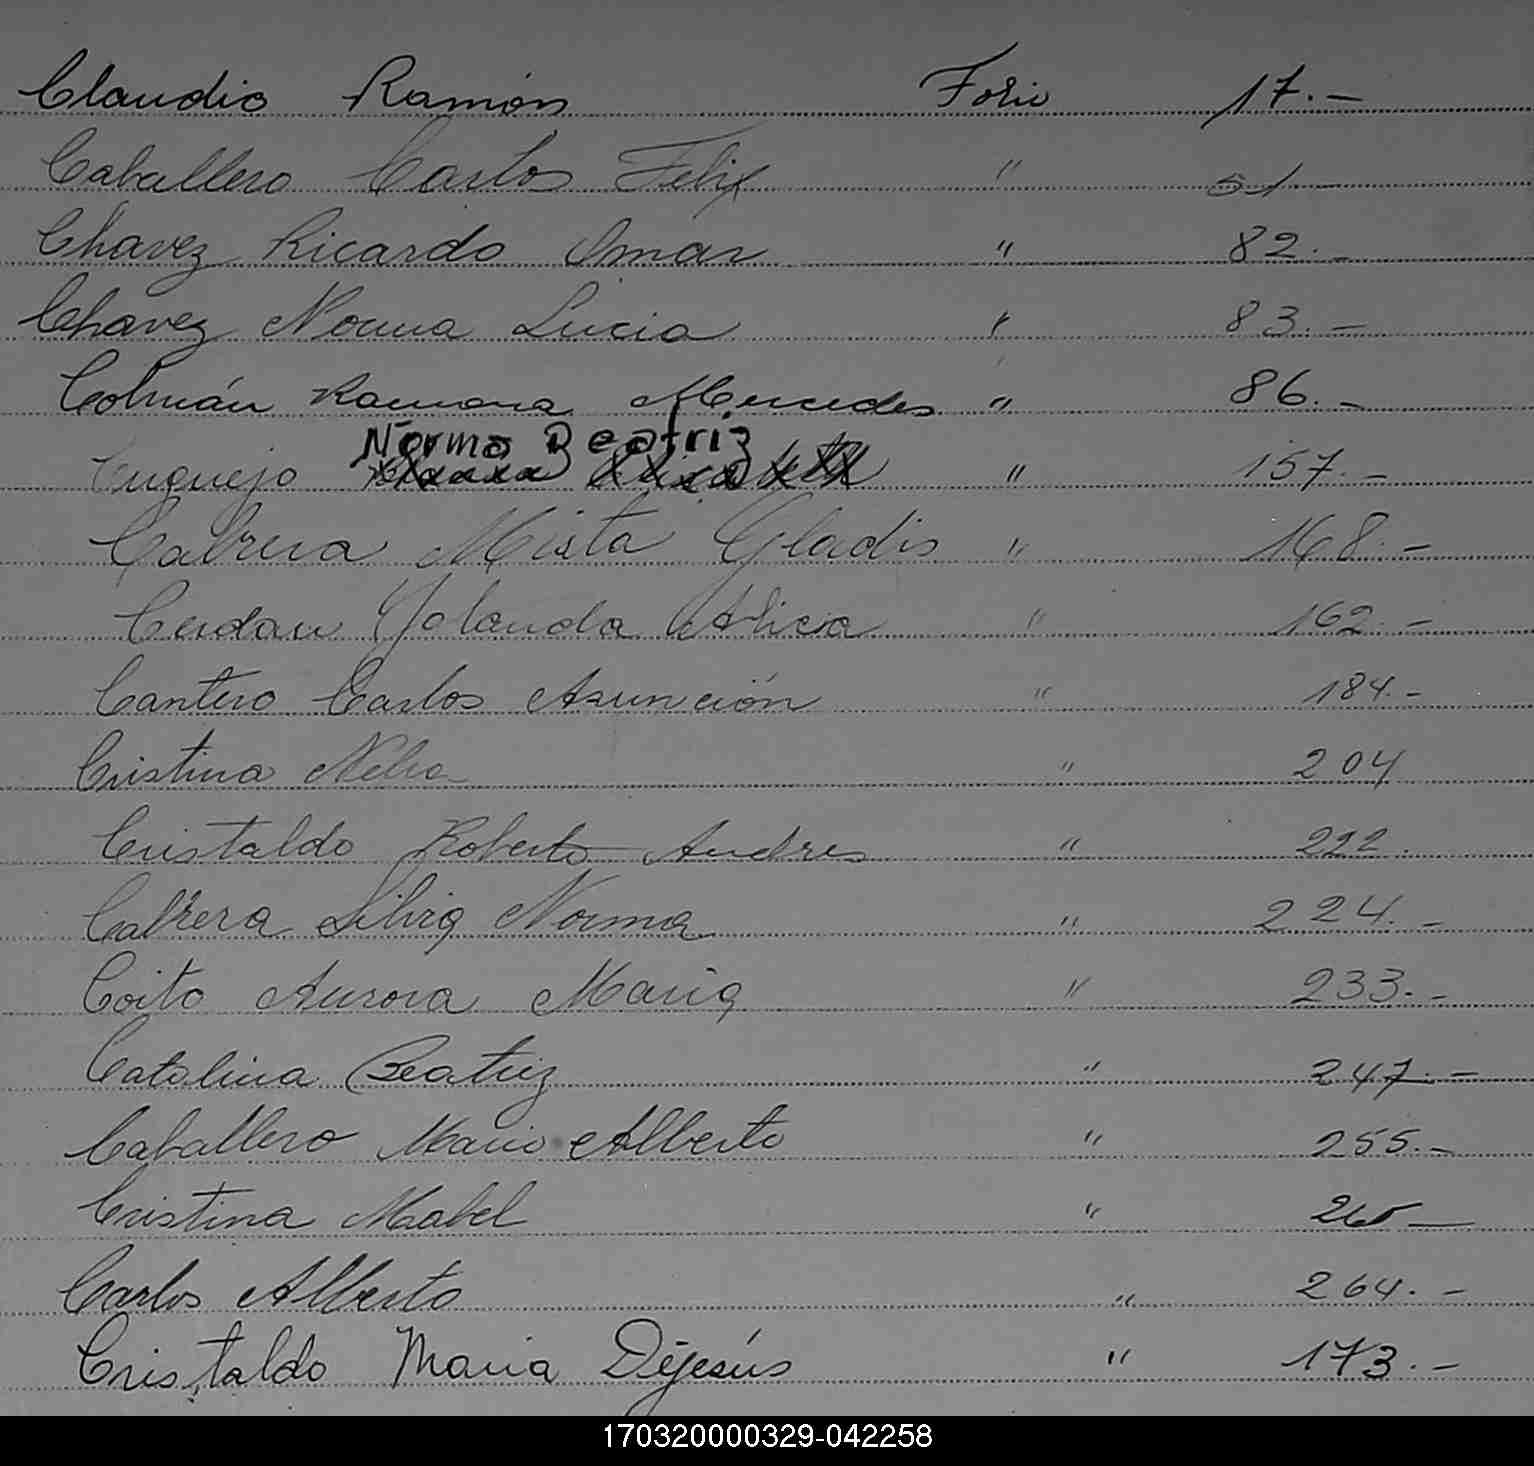 Claudio Ramón Folio 17.-
Caballero Carlos Felix " 51-
Chavez Ricardo Omar " 82.-
Chavez Norma Lucia " 83.-
Colmán Ramona Mercedes " 86.-
Norma Beatriz
Cuquejo " 157.-
Cabrera Mirta Gladis " 168.-
Cerdan Yolanda Alicia " 162.-
Cantero Carlos Asunción " 184.-
Cristina Nelva " 204
Cristaldo Roberto Andres " 222.
Cabrera Silvia Norma " 224.-
Coito Aurora Maria " 233.-
Catalina Beatriz " 247.-
Caballero Mario Alberto " 255.-
Cristina Mabel " -
Carlos Alberto " 264.-
Cristaldo Maria Dejesús " 173.-
170320000329-042258